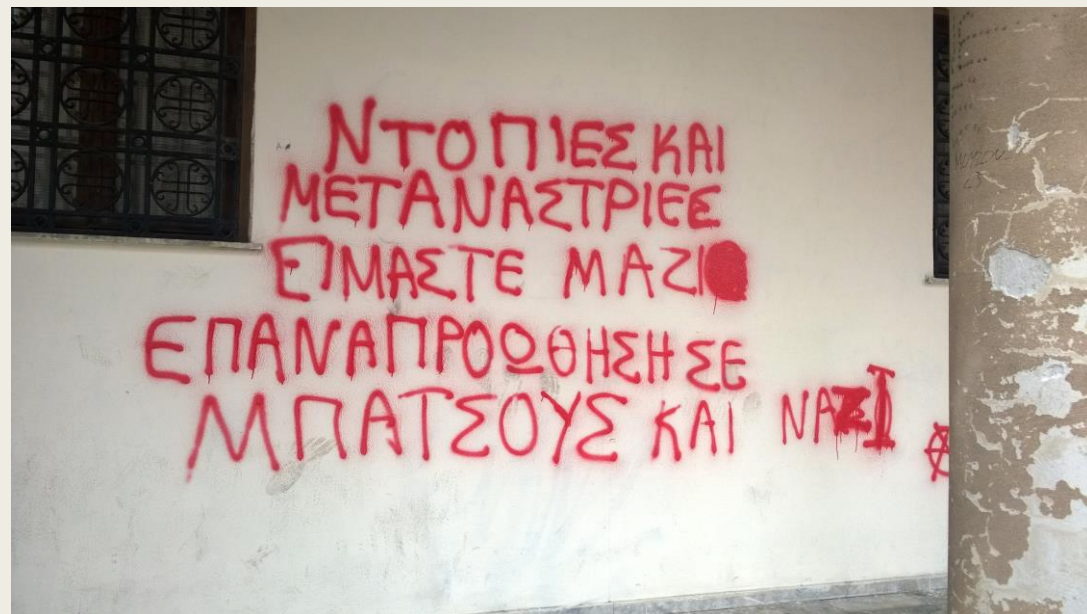 ΝΤΟΠΙΕΣ ΚΑΙ
ΜΕΤΑΝΑΣΤΡΙΕΣ
ΕΙΜΑΣΤΕ ΜΑΖΙ
ΕΠΑΝΑΠΡΟΩΘΗΣΗ ΣΕ
ΜΠΑΤΣΟΥΣ ΚΑΙ ΝΑΖΙ